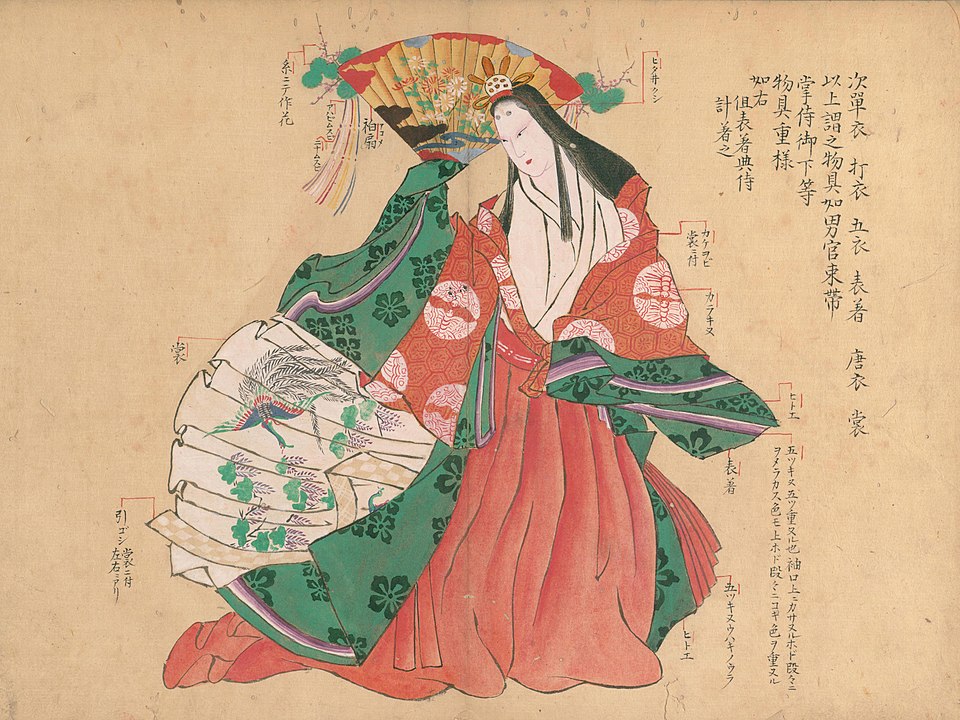 次單衣 打衣 五衣 表着 唐衣 裳
以上謂之物具如男官束帶
掌侍御下等
物具重様
如右
但表着典侍
計着之
ヒタヰクシ
糸ニテ作花
アコメ
袙扇
ハヒムスヒ
ニナムスヒ
カケヲヒ
裳ニ付
カラキヌ
裳
ヒトエ
表着
五ツキヌ五ツ重ヌル也袖口上ニカサヌルホド段々ニ
ヲメラカス色モ上ホド段々ニコキ色ヲ重ヌル
引ゴシ
裳ニ付
左右ニアリ
五ツキヌウハキノウラ
ヒトエ